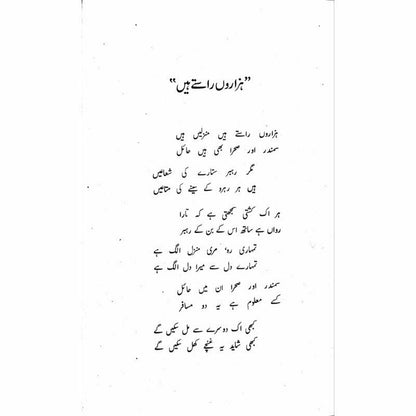 "ہزاروں راستے ہیں"
ہزاروں راستے ہیں منزلیں ہیں
سمندر اور صحرا بھی ہیں حائل
مگر رہبر ستارے کی شعاعیں
ہیں ہر رہرو کے سینے کی متاعیں
ہر اک کشتی سمجھتی ہے کہ تارا
رواں ہے ساتھ اس کے بن کے رہبر
تمہاری رہ، مری منزل الگ ہے
تمہارے دل سے میرا دل الگ ہے
سمندر اور صحرا ان میں حائل
کسے معلوم ہے یہ دو مسافر
کبھی اک دوسرے سے مل سکیں گے
کبھی شاید یہ غنچے کھل سکیں گے